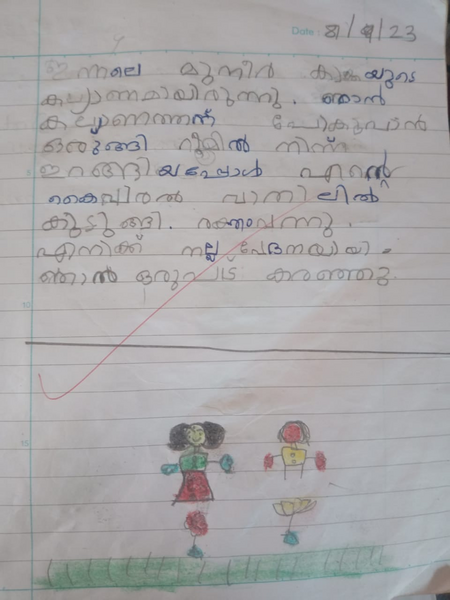 Date: 8/9/23
ഇന്നലെ മുനീർ കാക്കയുടെ
കല്യാണമായിരുന്നു. ഞാൻ
കല്യാണത്തന് പോകുവാൻ
ഒരുങ്ങി റൂമിൽ നിന്ന്
ഇറങ്ങിയപ്പോൾ എന്റെ
കൈവിരൽ വാതിലിൽ
കുടുങ്ങി. രക്തംവന്നു.
എനിക്ക് നല്ല വേദനയായി.
ഞാൻ ഒരുപാട് കരഞ്ഞു.